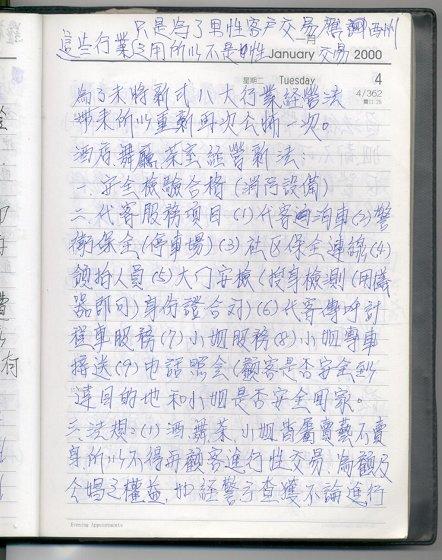 只是為了男性客戶交易應調酒州
這些行業適用所以不是女性 交易
January 2000
星期二 Tuesday 4
4/362
為了未將新式八大行業經營法
帶來所以重新再次公佈一次。
酒店、舞廳、茶室經營新法：
一、安全檢驗合格（消防設備）
二、代客服務項目（1）代客泊車（2）警
衛保全（停車場）（3）社区保全連線（4）
領枱人員（5）大门安檢（搜身檢測（用儀
器即可）身份證合对）（6）代客傳呼計
程車服務（7）小姐服務（8）小姐專車
接送（9）电話照会（顧客是否安全到
達目的地和小姐是否安全回家。
三、法規。（1）酒、舞、茶，小姐皆屬賣藝不賣
身所以不得再顧客進行性交易，為顧及
公娼之權益，如經警方查獲不論進行
Evening Appointments